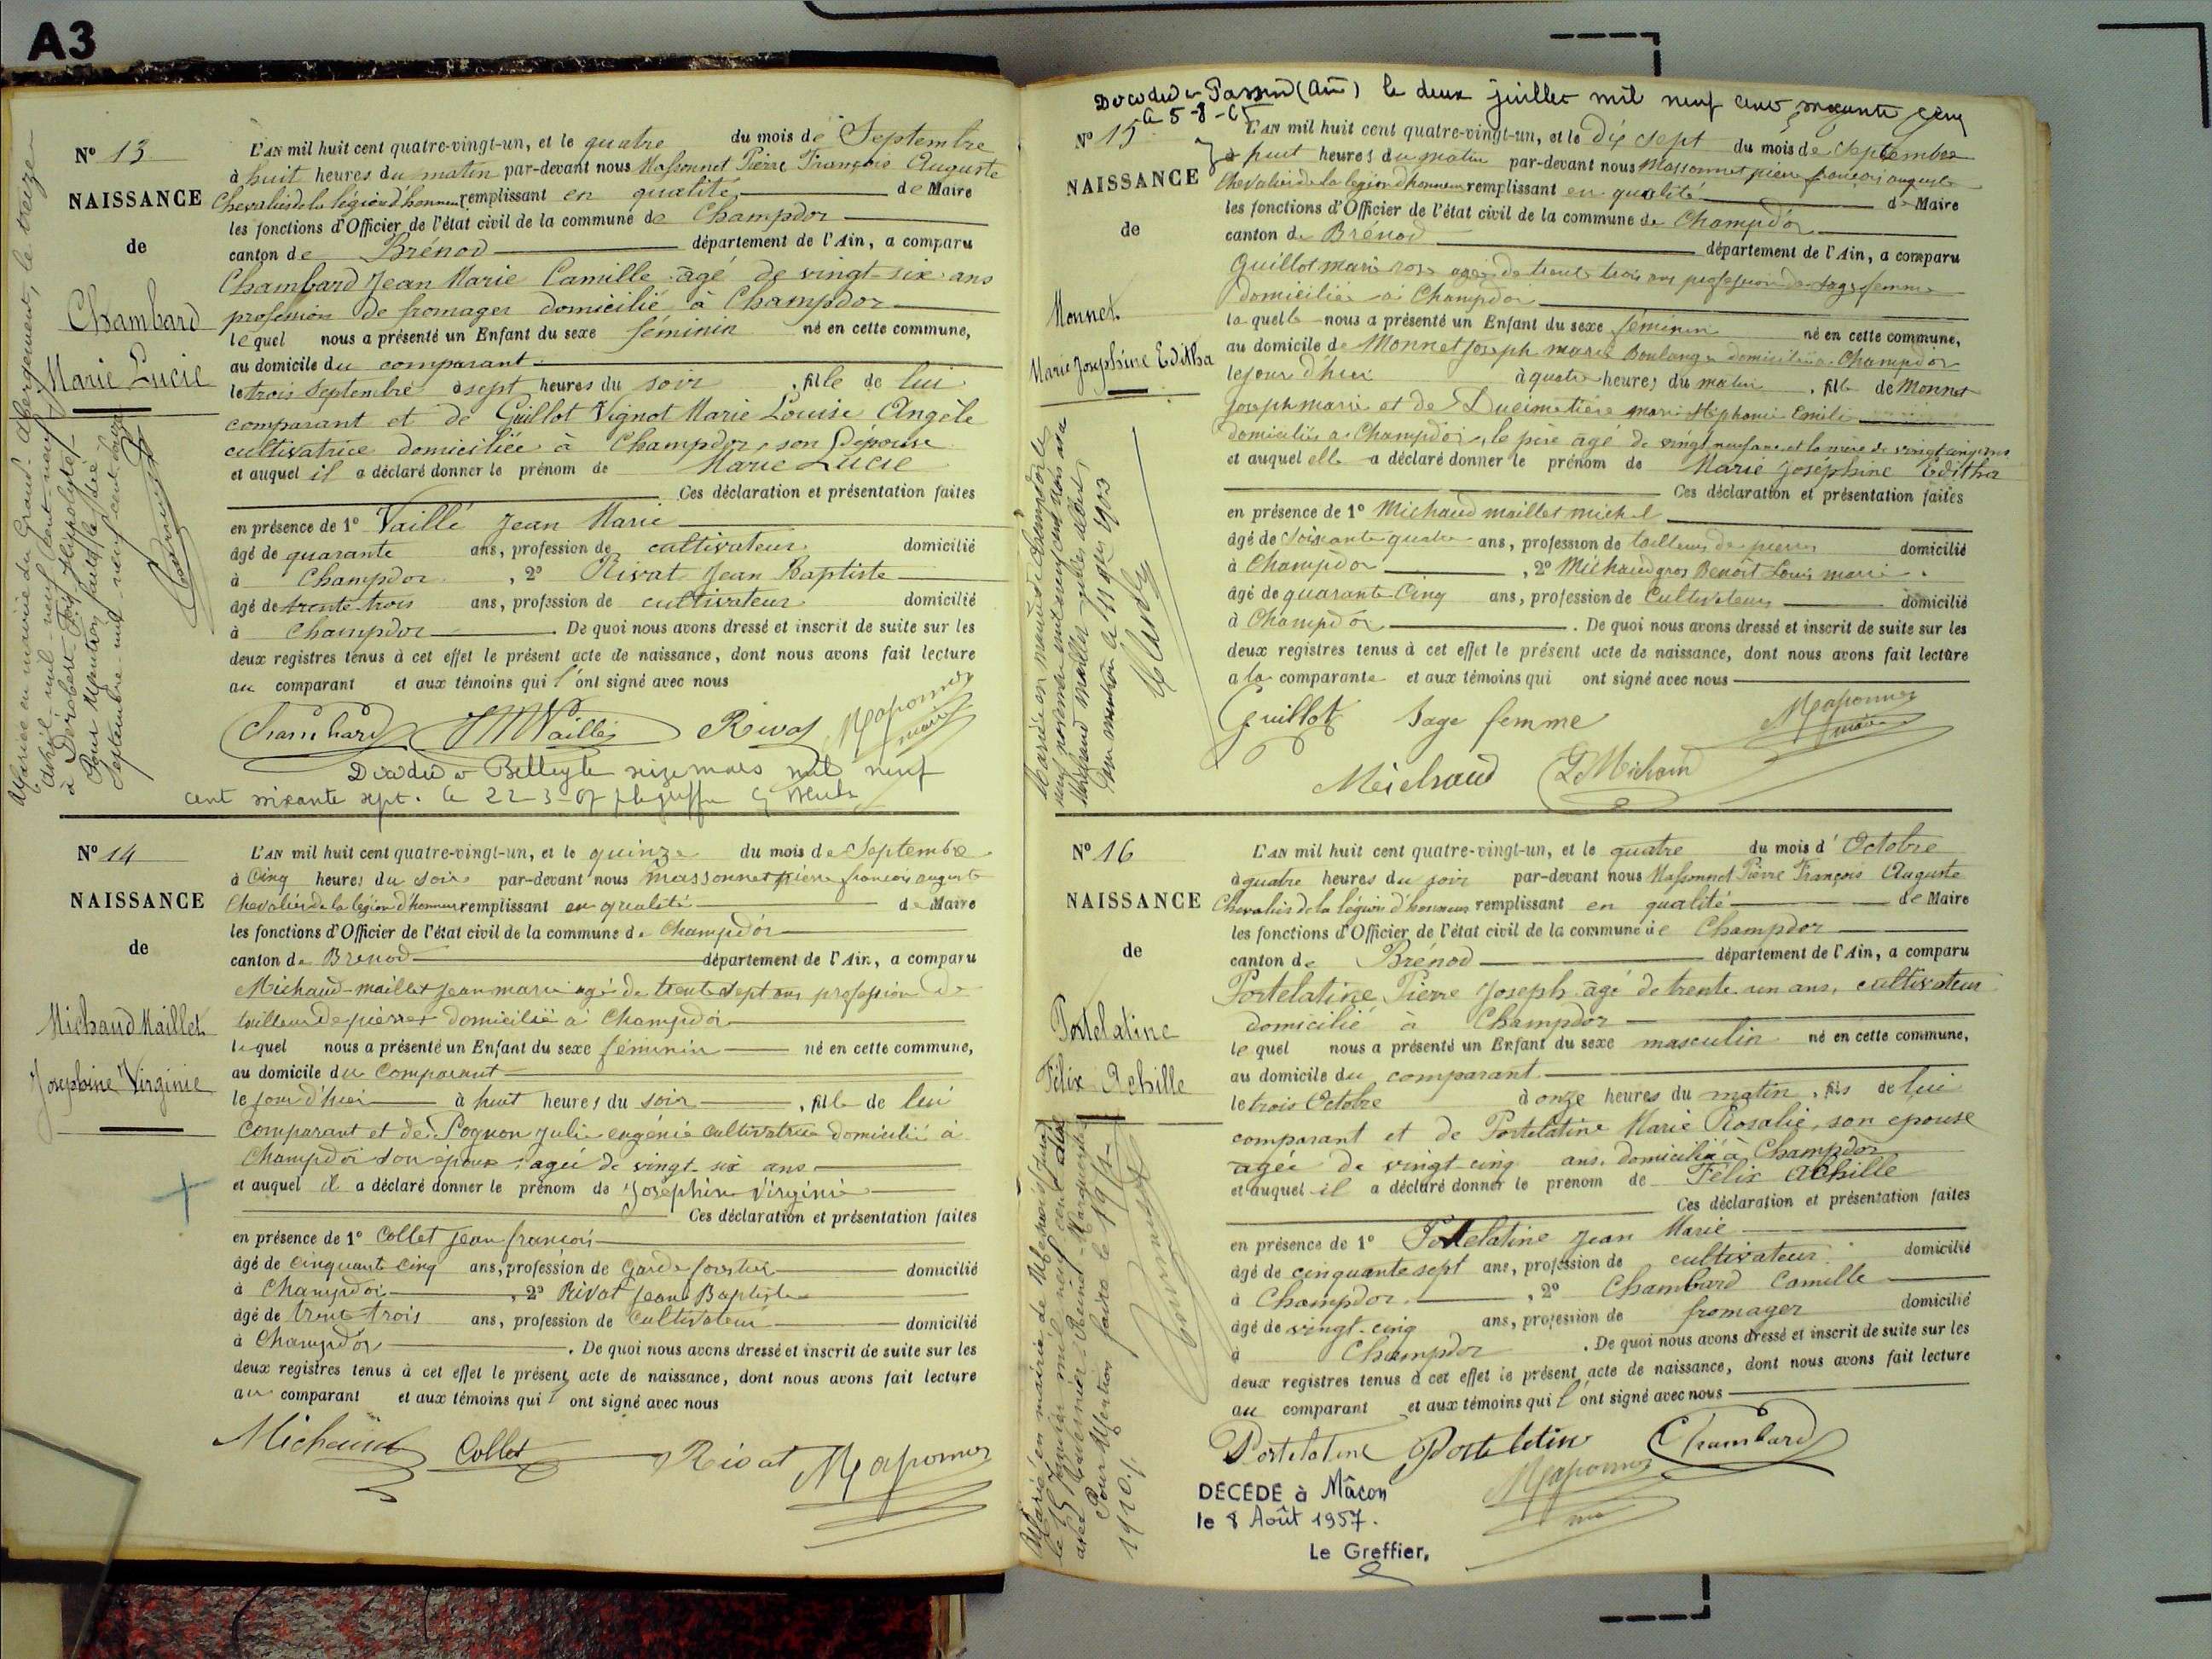 A3
N° 13
NAISSANCE
de
Chambard
Marie Lucie
L'AN mil huit cent quatre-vingt-un, et le quatre du mois de Septembre
à huit heures du matin par-devant nous Massonnet Pierre François Auguste
Chevalier de la légion d'honneur remplissant en qualité de Maire
les fonctions d'Officier de l'état civil de la commune de Champdor
canton de Brénod département de l'Ain, a comparu
Chambard Jean Marie Camille agé de vingt-six ans
profession de fromager domicilié à Champdor
lequel nous a présenté un Enfant du sexe féminin né en cette commune,
au domicile du comparant
le trois Septembre à sept heures du soir , fille de lui
comparant et de Guillot Vignot Marie Louise Angèle
cultivatrice domiciliée à Champdor, son Épouse
et auquel il a déclaré donner le prénom de Marie Lucie
Ces déclaration et présentation faites
en présence de 1° Vaillé Jean Marie
âgé de quarante ans, profession de cultivateur domicilié
à Champdor , 2° Rivat Jean Baptiste
âgé de trente trois ans, profession de cultivateur domicilié
à Champdor . De quoi nous avons dressé et inscrit de suite sur les
deux registres tenus à cet effet le présent acte de naissance, dont nous avons fait lecture
au comparant et aux témoins qui l'ont signé avec nous
Chambard JM Vaillé Rivat Massonnet
maire
Décédée à Belley le seize mars mil neuf
cent soixante sept. Le 22-3-67
Mariée en mairie du Grand-Abergement, le treize
avril mil-neuf-cent-neuf
à Hippolyte
Pour Mention faite le dix
Septembre mil neuf cent
N° 14
NAISSANCE
de
Michaud Maillet
Joséphine Virginie
L'AN mil huit cent quatre-vingt-un, et le quinze du mois de Septembre
à Cinq heures du Soir par-devant nous massonnet pierre françois auguste
Chevalier de la legion d'honneur remplissant en qualité de Maire
les fonctions d'Officier de l'état civil de la commune de Champdor
canton de Brenod département de l'Ain, a comparu
Michaud-maillet jean marie agé de trente sept ans profession de
tailleur de pierres domicilié à Champdor
lequel nous a présenté un Enfant du sexe féminin né en cette commune,
au domicile du Comparant
le jour d'hier à huit heures du soir , fille de lui
Comparant et de Pognon Julie eugénie cultivatrice domicilié à
Champdor son epouse agée de vingt-six ans
et auquel il a déclaré donner le prénom de Joséphine Virginie
Ces déclaration et présentation faites
en présence de 1° Collet jean françois
âgé de cinquante cinq ans, profession de Garde forestier domicilié
à Champdor , 2° Rivat Jean Baptiste
âgé de trente trois ans, profession de Cultivateur domicilié
à Champdor . De quoi nous avons dressé et inscrit de suite sur les
deux registres tenus à cet effet le présent acte de naissance, dont nous avons fait lecture
au comparant et aux témoins qui l'ont signé avec nous
Michaud Collet Rivat Massonnet
Décédée à (Ain) le deux juillet mil neuf cent soixante cinq
le 5-8-65
N° 15
NAISSANCE
de
Monnet
Marie Joséphine Editha
L'AN mil huit cent quatre-vingt-un, et le Dix sept du mois de Septembre
à huit heures du matin par-devant nous massonnet pierre françois auguste
Chevalier de la legion d'honneur remplissant en qualité de Maire
les fonctions d'Officier de l'état civil de la commune de Champdor
canton de Brénod département de l'Ain, a comparu
Guillot marie rose agée de trente trois ans profession de sage femme
domiciliée à Champdor
laquelle nous a présenté un Enfant du sexe féminin né en cette commune,
au domicile de Monnet joseph marie Boulanger domicilié à Champdor
le jour d'hier à quatre heures du matin , fille de Monnet
joseph marie et de Ducimetière marie Stéphanie Emilie
domiciliés à Champdor, le père agé de vingt neuf ans et la mère de vingt cinq ans
et auquel elle a déclaré donner le prénom de Marie Joséphine Editha
Ces déclaration et présentation faites
en présence de 1° Michaud maillet michel
âgé de Soixante quatre ans, profession de tailleur de pierres domicilié
à Champdor , 2° Michaud gros Benoît Louis marie
âgé de quarante Cinq ans, profession de Cultivateur domicilié
à Champdor . De quoi nous avons dressé et inscrit de suite sur les
deux registres tenus à cet effet le présent acte de naissance, dont nous avons fait lecture
a la comparante et aux témoins qui ont signé avec nous
Guillot Sage femme Massonnet
maire
Michaud L Michaud
Mariée en mairie de Champdor le
neuf novembre mil neuf cent trois au
Michaud maillet Jules Albert
Pour mention le 11 9bre 1903
N° 16
NAISSANCE
de
Portelatine
Félix Achille
L'AN mil huit cent quatre-vingt-un, et le quatre du mois d'Octobre
à quatre heures du soir par-devant nous Massonnet Pierre François Auguste
Chevalier de la légion d'honneur remplissant en qualité de Maire
les fonctions d'Officier de l'état civil de la commune de Champdor
canton de Brénod département de l'Ain, a comparu
Portelatine Pierre Joseph agé de trente un ans, cultivateur
domicilié à Champdor
lequel nous a présenté un Enfant du sexe masculin né en cette commune,
au domicile du comparant
le trois Octobre à onze heures du matin , fils de lui
comparant et de Portelatine Marie Rosalie, son epouse
agée de vingt-cinq ans, domiciliée à Champdor
et auquel il a déclaré donner le prénom de Félix Achille
Ces déclaration et présentation faites
en présence de 1° Portelatine Jean Marie
âgé de cinquante sept ans, profession de cultivateur domicilié
à Champdor , 2° Chambard Camille
âgé de vingt-cinq ans, profession de fromager domicilié
à Champdor . De quoi nous avons dressé et inscrit de suite sur les
deux registres tenus à cet effet le présent acte de naissance, dont nous avons fait lecture
au comparant et aux témoins qui l'ont signé avec nous
Portelatine Portelatine Chambard
Massonnet
DÉCÉDÉ à Mâcon
le 8 Août 1957.
Le Greffier,
Marié en mairie de
le 15 Janvier mil neuf cent dix
avec
Pour Mention faite le 19/1
1910